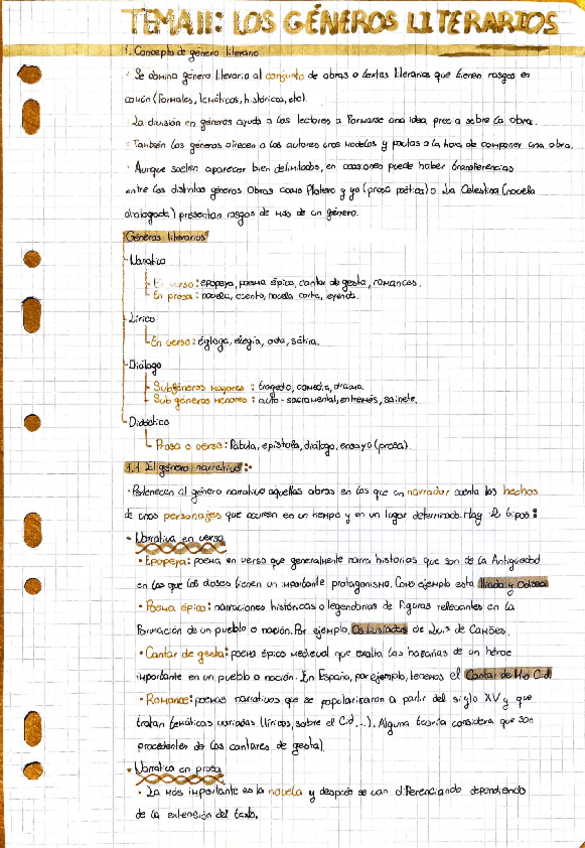 TEMA 11: LOS GÉNEROS LITERARIOS
1. Concepto de género literario
· Se domina género literario al conjunto de obras o textos literarios que tienen rasgos en
común (formales, temáticos, históricos, etc).
· La división en géneros ayuda a los lectores a formarse una idea previa sobre la obra.
· También los géneros ofrecen a los autores unos modelos y pautas a la hora de componer una obra.
· Aunque suelen aparecer bien delimitados, en ocasiones puede haber transferencias
entre los distintos géneros Obras como Platero y yo (prosa poética) o La Celestina (novela
dialogada) presentan rasgos de más de un género.
Géneros literarios
Narrativo
En verso: epopeya, poema épico, cantar de gesta, romances.
En prosa: novela, cuento, novela corta, leyenda.
Lírico
En verso: égloga, elegía, oda, sátira.
Diálogo
Subgéneros mayores: tragedia, comedia, drama.
Subgéneros menores: auto-sacramental, entremés, sainete.
Didáctico
Prosa o verso: Fábula, epístola, diálogo, ensayo (prosa).
1.1 El género narrativo:
· Pertenecen al género narrativo aquellas obras en las que un narrador cuenta los hechos
de unos personajes que ocurren en un tiempo y en un lugar determinado. Hay 2 tipos:
· Narrativa en verso
· Epopeya: poema en verso que generalmente narra historias que son de la Antigüedad
en las que los dioses tienen un importante protagonismo. Como ejemplo esta Iliada y Odisea
· Poema épico: narraciones históricas o legendarias de figuras relevantes en la
formación de un pueblo o nación. Por ejemplo, Os Lusiadas de Luis de Camões.
· Cantar de gesta: poema épico medieval que exalta las hazañas de un héroe
importante en un pueblo o nación. En España, por ejemplo, tenemos el Cantar de Mio Cid
· Romance: poemas narrativos que se popularizaron a partir del siglo XV y que
tratan temáticas variadas (líricos, sobre el Cid...). Alguna teoría considera que son
procedentes de los cantares de gesta).
· Narrativa en prosa
· La más importante es la novela y después se van diferenciando dependiendo
de la extensión del texto.